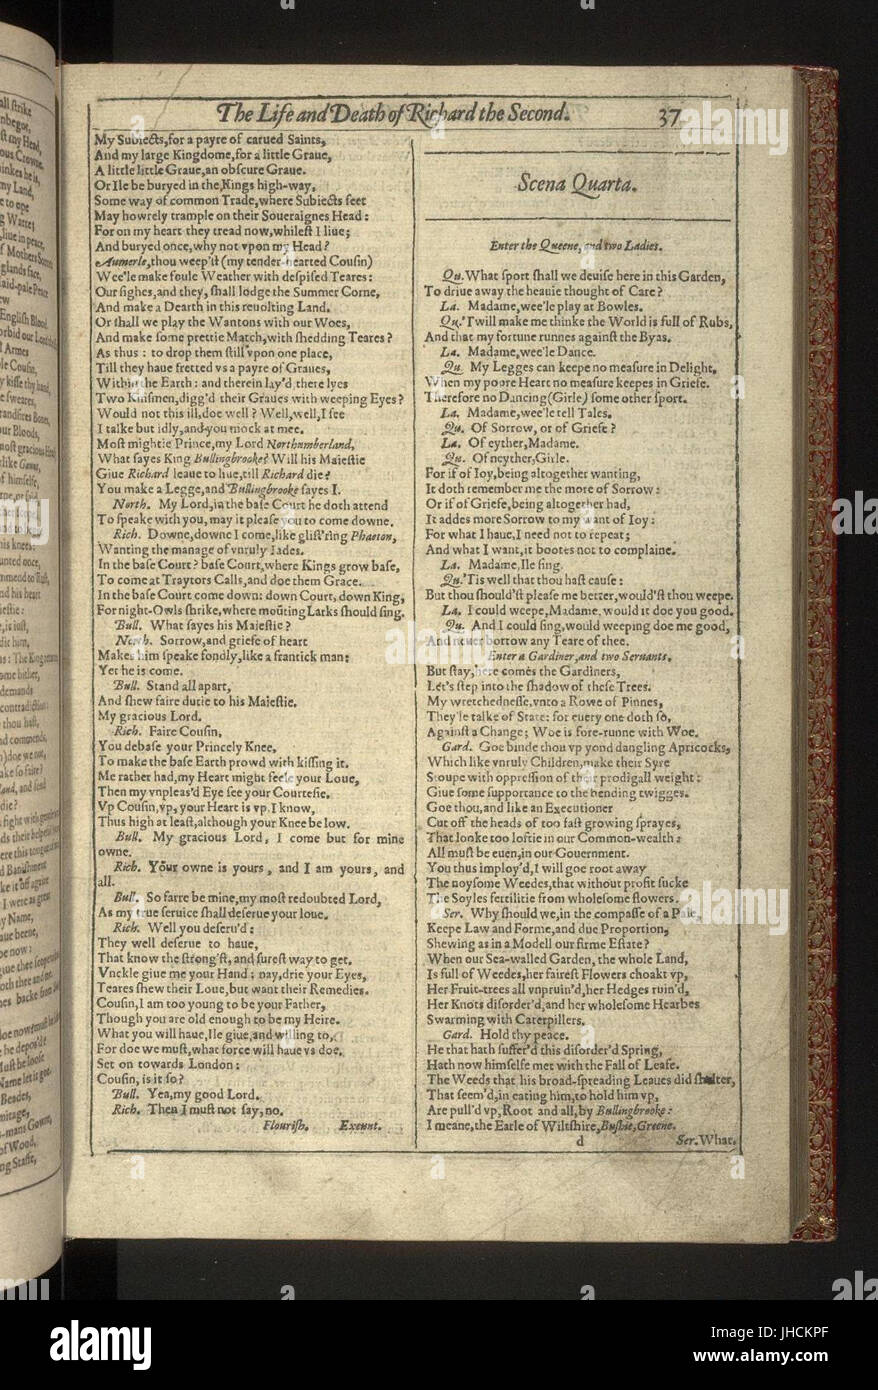 The Life and Death of Richard the Second.
37
My Subiects, for a payre of carued Saints,
And my large Kingdome, for a little Graue,
A little little Graue, an obscure Graue.
Or Ile be buryed in the Kings high-way,
Some way of common Trade, where Subiects feet
May howrely trample on their Soueraignes Head:
For on my heart they tread now, whilest I liue;
And buryed once, why not vpon my Head?
Aumerle, thou weep'st (my tender-hearted Cousin)
Wee'le make foule Weather with despised Teares:
Our sighes, and they, shall lodge the Summer Corne,
And make a Dearth in this reuolting Land.
Or shall we play the Wantons with our Woes,
And make some prettie Match, with shedding Teares?
As thus: to drop them still vpon one place,
Till they haue fretted vs a payre of Graues,
Within the Earth: and therein lay'd, there lyes
Two Kinsmen, digg'd their Graues with weeping Eyes?
Would not this ill, doe well? Well, well, I see
I talke but idly, and you mock at mee.
Most mightie Prince, my Lord Northumberland,
What sayes King Bullingbrooke? Will his Maiestie
Giue Richard leaue to liue, till Richard die?
You make a Legge, and Bullingbrooke sayes I.
North. My Lord, in the base Court he doth attend
To speake with you, may it please you to come downe.
Rich. Downe, downe I come, like glist'ring Phaeton,
Wanting the manage of vnruly Iades.
In the base Court? base Court, where Kings grow base,
To come at Traytors Calls, and doe them Grace.
In the base Court come down: down Court, down King,
For night-Owls shrike, where moũting Larks should sing.
Bull. What sayes his Maiestie?
North. Sorrow, and griefe of heart
Makes him speake fondly, like a frantick man:
Yet he is come.
Bull. Stand all apart,
And shew faire dutie to his Maiestie.
My gracious Lord.
Rich. Faire Cousin,
You debase your Princely Knee,
To make the base Earth prowd with kissing it.
Me rather had, my Heart might feele your Loue,
Then my vnpleas'd Eye see your Courtesie.
Vp Cousin, vp, your Heart is vp, I know,
Thus high at least, although your Knee be low.
Bull. My gracious Lord, I come but for mine
owne.
Rich. Your owne is yours, and I am yours, and
all.
Bull. So farre be mine, my most redoubted Lord,
As my true seruice shall deserue your loue.
Rich. Well you deseru'd:
They well deserue to haue,
That know the strong'st, and surest way to get.
Vnckle giue me your Hand: nay, drie your Eyes,
Teares shew their Loue, but want their Remedies.
Cousin, I am too young to be your Father,
Though you are old enough to be my Heire.
What you will haue, Ile giue, and willing to,
For doe we must, what force will haue vs doe.
Set on towards London:
Cousin, is it so?
Bull. Yea, my good Lord.
Rich. Then I must not say, no.
Flourish. Exeunt.
Scena Quarta.
Enter the Queene, and two Ladies.
Qu. What sport shall we deuise here in this Garden,
To driue away the heauie thought of Care?
La. Madame, wee'le play at Bowles.
Qu. 'Twill make me thinke the World is full of Rubs,
And that my fortune runnes against the Byas.
La. Madame, wee'le Dance.
Qu. My Legges can keepe no measure in Delight,
When my poore Heart no measure keepes in Griefe.
Therefore no Dancing (Girle) some other sport.
La. Madame, wee'le tell Tales.
Qu. Of Sorrow, or of Griefe?
La. Of eyther, Madame.
Qu. Of neyther, Girle.
For if of Ioy, being altogether wanting,
It doth remember me the more of Sorrow:
Or if of Griefe, being altogether had,
It addes more Sorrow to my want of Ioy:
For what I haue, I need not to repeat;
And what I want, it bootes not to complaine.
La. Madame, Ile sing.
Qu. 'Tis well that thou hast cause:
But thou should'st please me better, would'st thou weepe.
La. I could weepe, Madame, would it doe you good.
Qu. And I could sing, would weeping doe me good,
And neuer borrow any Teare of thee.
Enter a Gardiner, and two Seruants.
But stay, here comes the Gardiners,
Let's step into the shadow of these Trees.
My wretchednesse, vnto a Rowe of Pinnes,
They'le talke of State: for euery one doth so,
Against a Change; Woe is fore-runne with Woe.
Gard. Goe binde thou vp yond dangling Apricocks,
Which like vnruly Children, make their Syre
Stoupe with oppression of their prodigall weight:
Giue some supportance to the bending twigges.
Goe thou, and like an Executioner
Cut off the heads of too fast growing sprayes,
That looke too loftie in our Common-wealth:
All must be euen, in our Gouernment.
You thus imploy'd, I will goe root away
The noysome Weedes, that without profit sucke
The Soyles fertilitie from wholesome flowers.
Ser. Why should we, in the compasse of a Pale,
Keepe Law and Forme, and due Proportion,
Shewing as in a Modell our firme Estate?
When our Sea-walled Garden, the whole Land,
Is full of Weedes, her fairest Flowers choakt vp,
Her Fruit-trees all vnpruin'd, her Hedges ruin'd,
Her Knots disorder'd, and her wholesome Hearbes
Swarming with Caterpillers.
Gard. Hold thy peace.
He that hath suffer'd this disorder'd Spring,
Hath now himselfe met with the Fall of Leafe.
The Weeds that his broad-spreading Leaues did shelter,
That seem'd, in eating him, to hold him vp,
Are pull'd vp, Root and all, by Bullingbrooke:
I meane, the Earle of Wiltshire, Bushie, Greene.
d
Ser. What
alamy
Image ID: JHCKPF
www.alamy.com